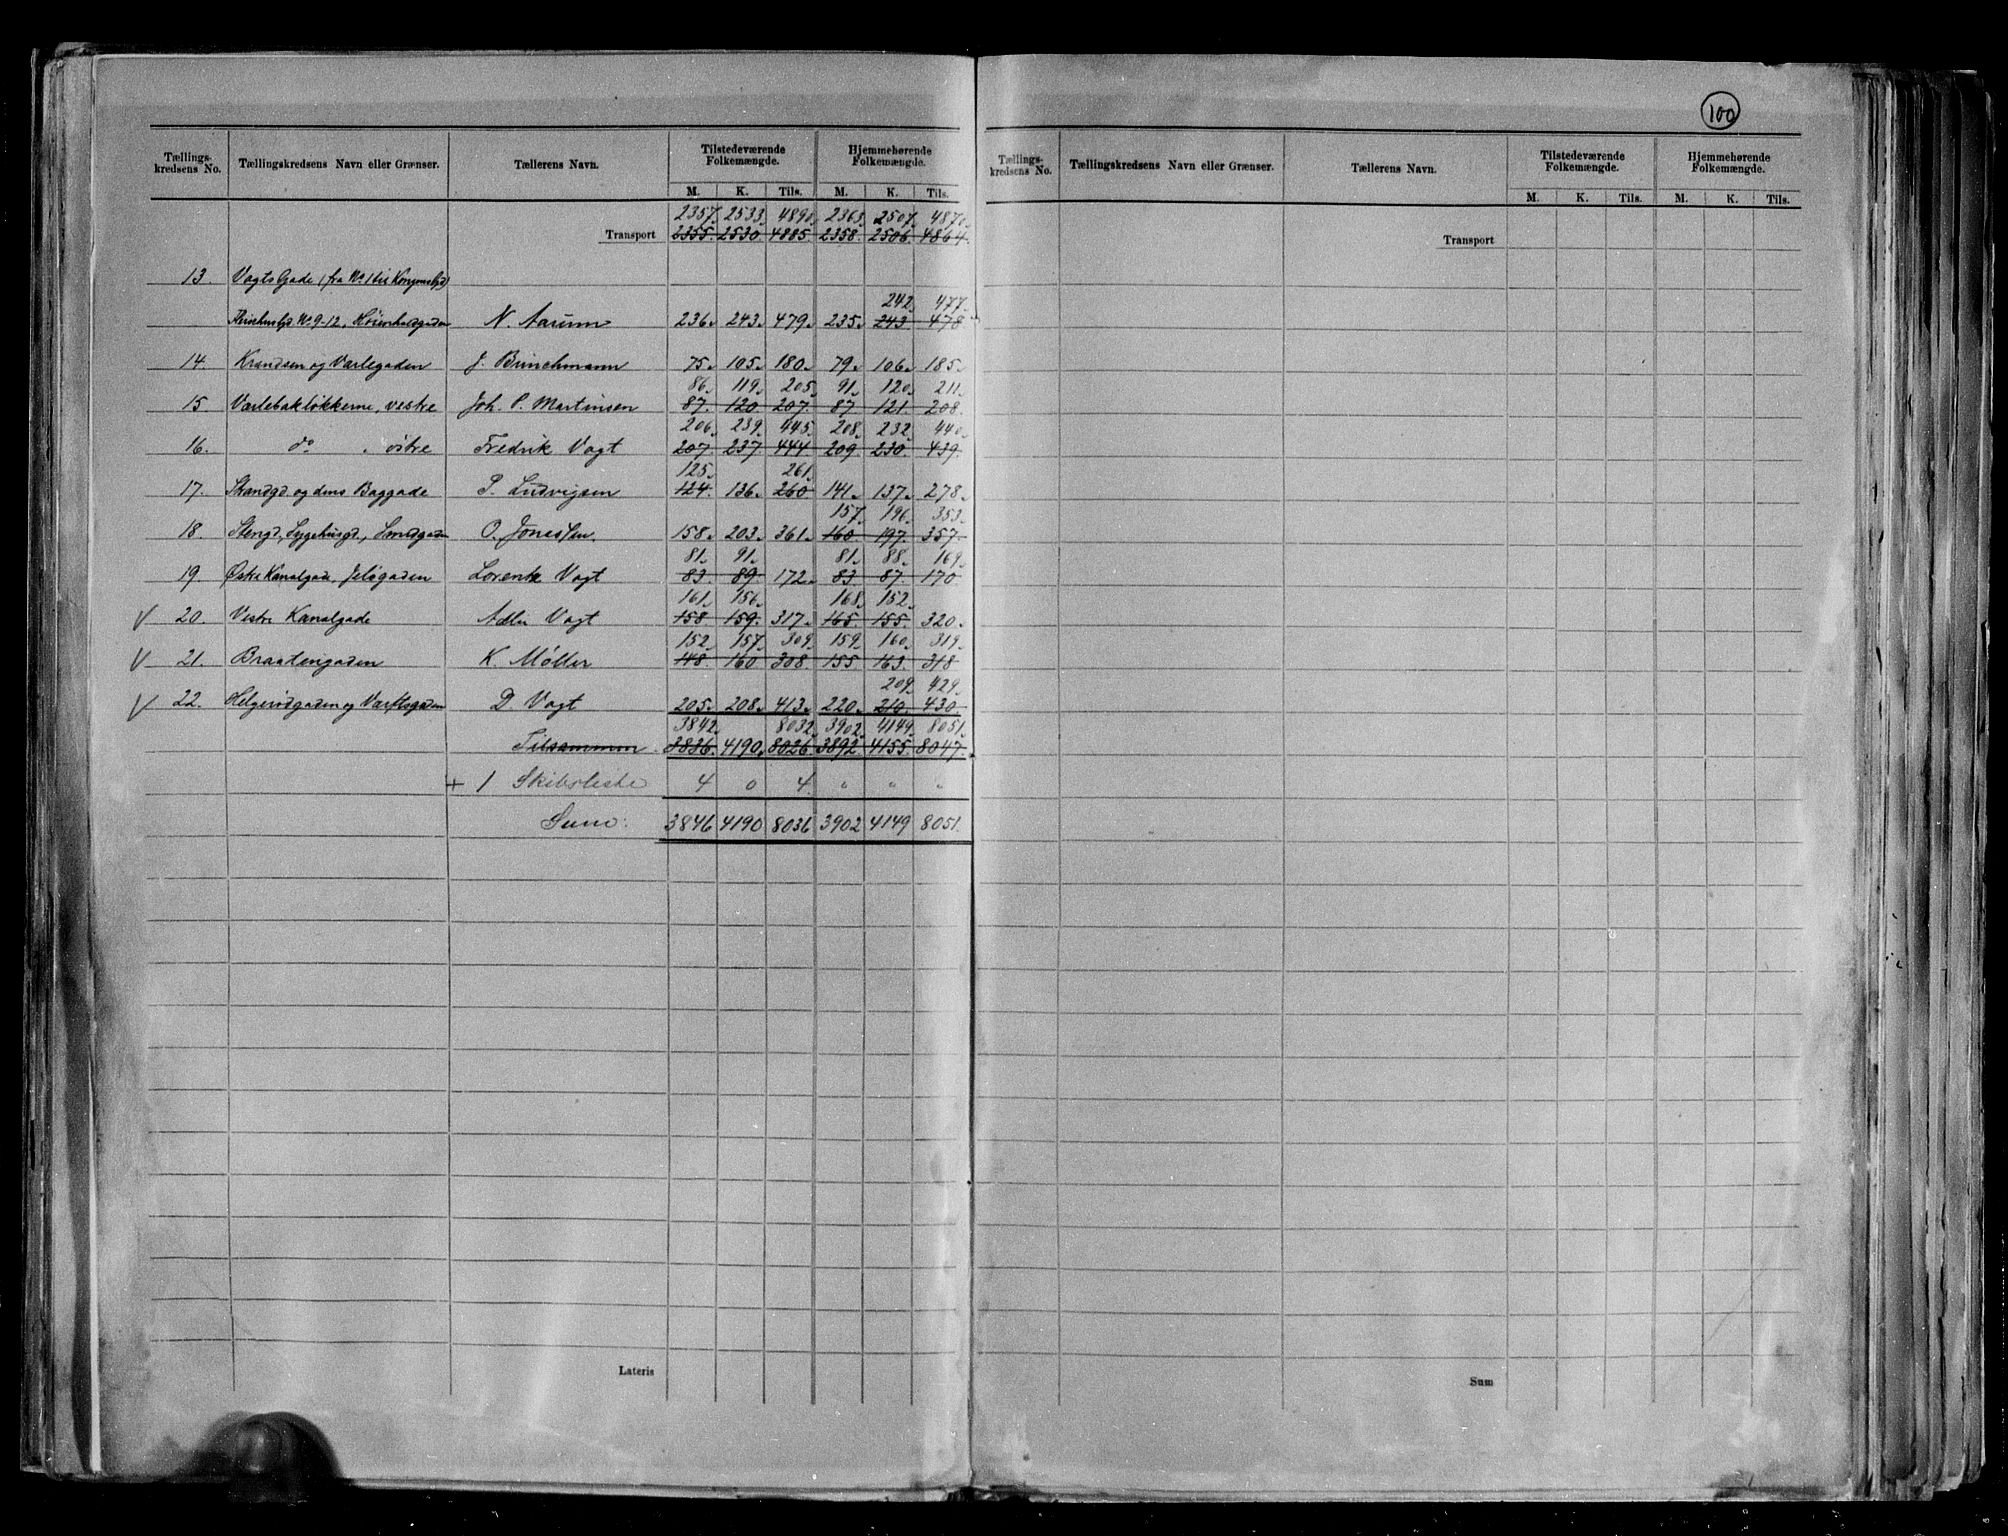 100
Tællings-kredsens No. Tællingskredsens Navn eller Grænser. Tællerens Navn. Tilstedeværende Folkemængde. Hjemmehørende Folkemængde.
M. K. Tils. M. K. Tils.
2357. 2533. 4890. 2363. 2507. 4870.
Transport 2355. 2530 4885. 2358. 2506. 4864.
13. Vogts Gade (fra No 1 til
242. 477.
No 9-12, N. Aarum 236. 243. 479. 235. 243 478
14. Krandsen og Varlegaden J. Brinchmann 75. 105. 180. 79. 106. 185.
86. 119. 205. 91. 120. 211.
15. Varlebakløkkerne, vestre Joh. P. Martinsen 87. 120 207. 87 121. 208.
206. 239. 445. 208. 232. 440.
16. do . østre Fredrik Vogt 207. 237 444 209 230. 439.
125. 261.
17. Strandgd og dens Baggade P. Ludvigsen 124. 136. 260 141. 137. 278.
157. 196. 353.
18. Stengd, Sygehusgd., Smedgaden O. Jonassen. 158. 203. 361. 160. 197. 357.
81. 91. 81. 88. 169.
19. Østre Kanalgade, Jeløgaden Lorentz Vogt 83. 89. 172. 83. 87. 170
161. 156. 168. 152.
V 20. Vestre Kanalgade Adler Vogt 158 159. 317. 165. 155. 320.
152. 157. 309. 159. 160. 319.
V 21. Braatengaden K. Møller 148. 160 308 155. 163. 318
209. 429.
V 22. Helgerødgaden og Varftsgaden D. Vogt 205. 208. 413. 220. 210. 430.
3842. 8032. 3902. 4149. 8051.
Tilsammen 3836. 4190. 8026. 3892. 4155. 8047.
+ 1 Skibsliste 4 0 4. " " "
Sum: 3846 4190 8036 3902 4149 8051.
Lateris
Tællings-kredsens No. Tællingskredsens Navn eller Grænser. Tællerens Navn. Tilstedeværende Folkemængde. Hjemmehørende Folkemængde.
M. K. Tils. M. K. Tils.
Transport
Sum